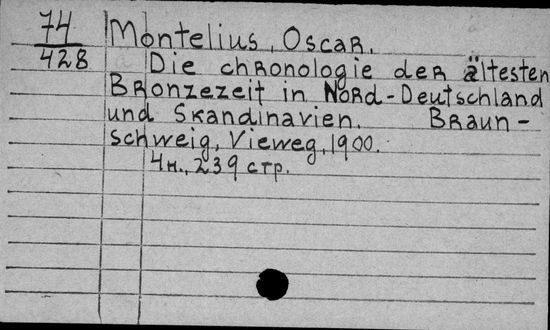 74
428
Montelius, Oscar.
Die chronologie der ältesten
Bronzezeit in Nord-Deutschland
und Skandinavien. Braun-
schweig, Vieweg, 1900.
4н., 239 стр.